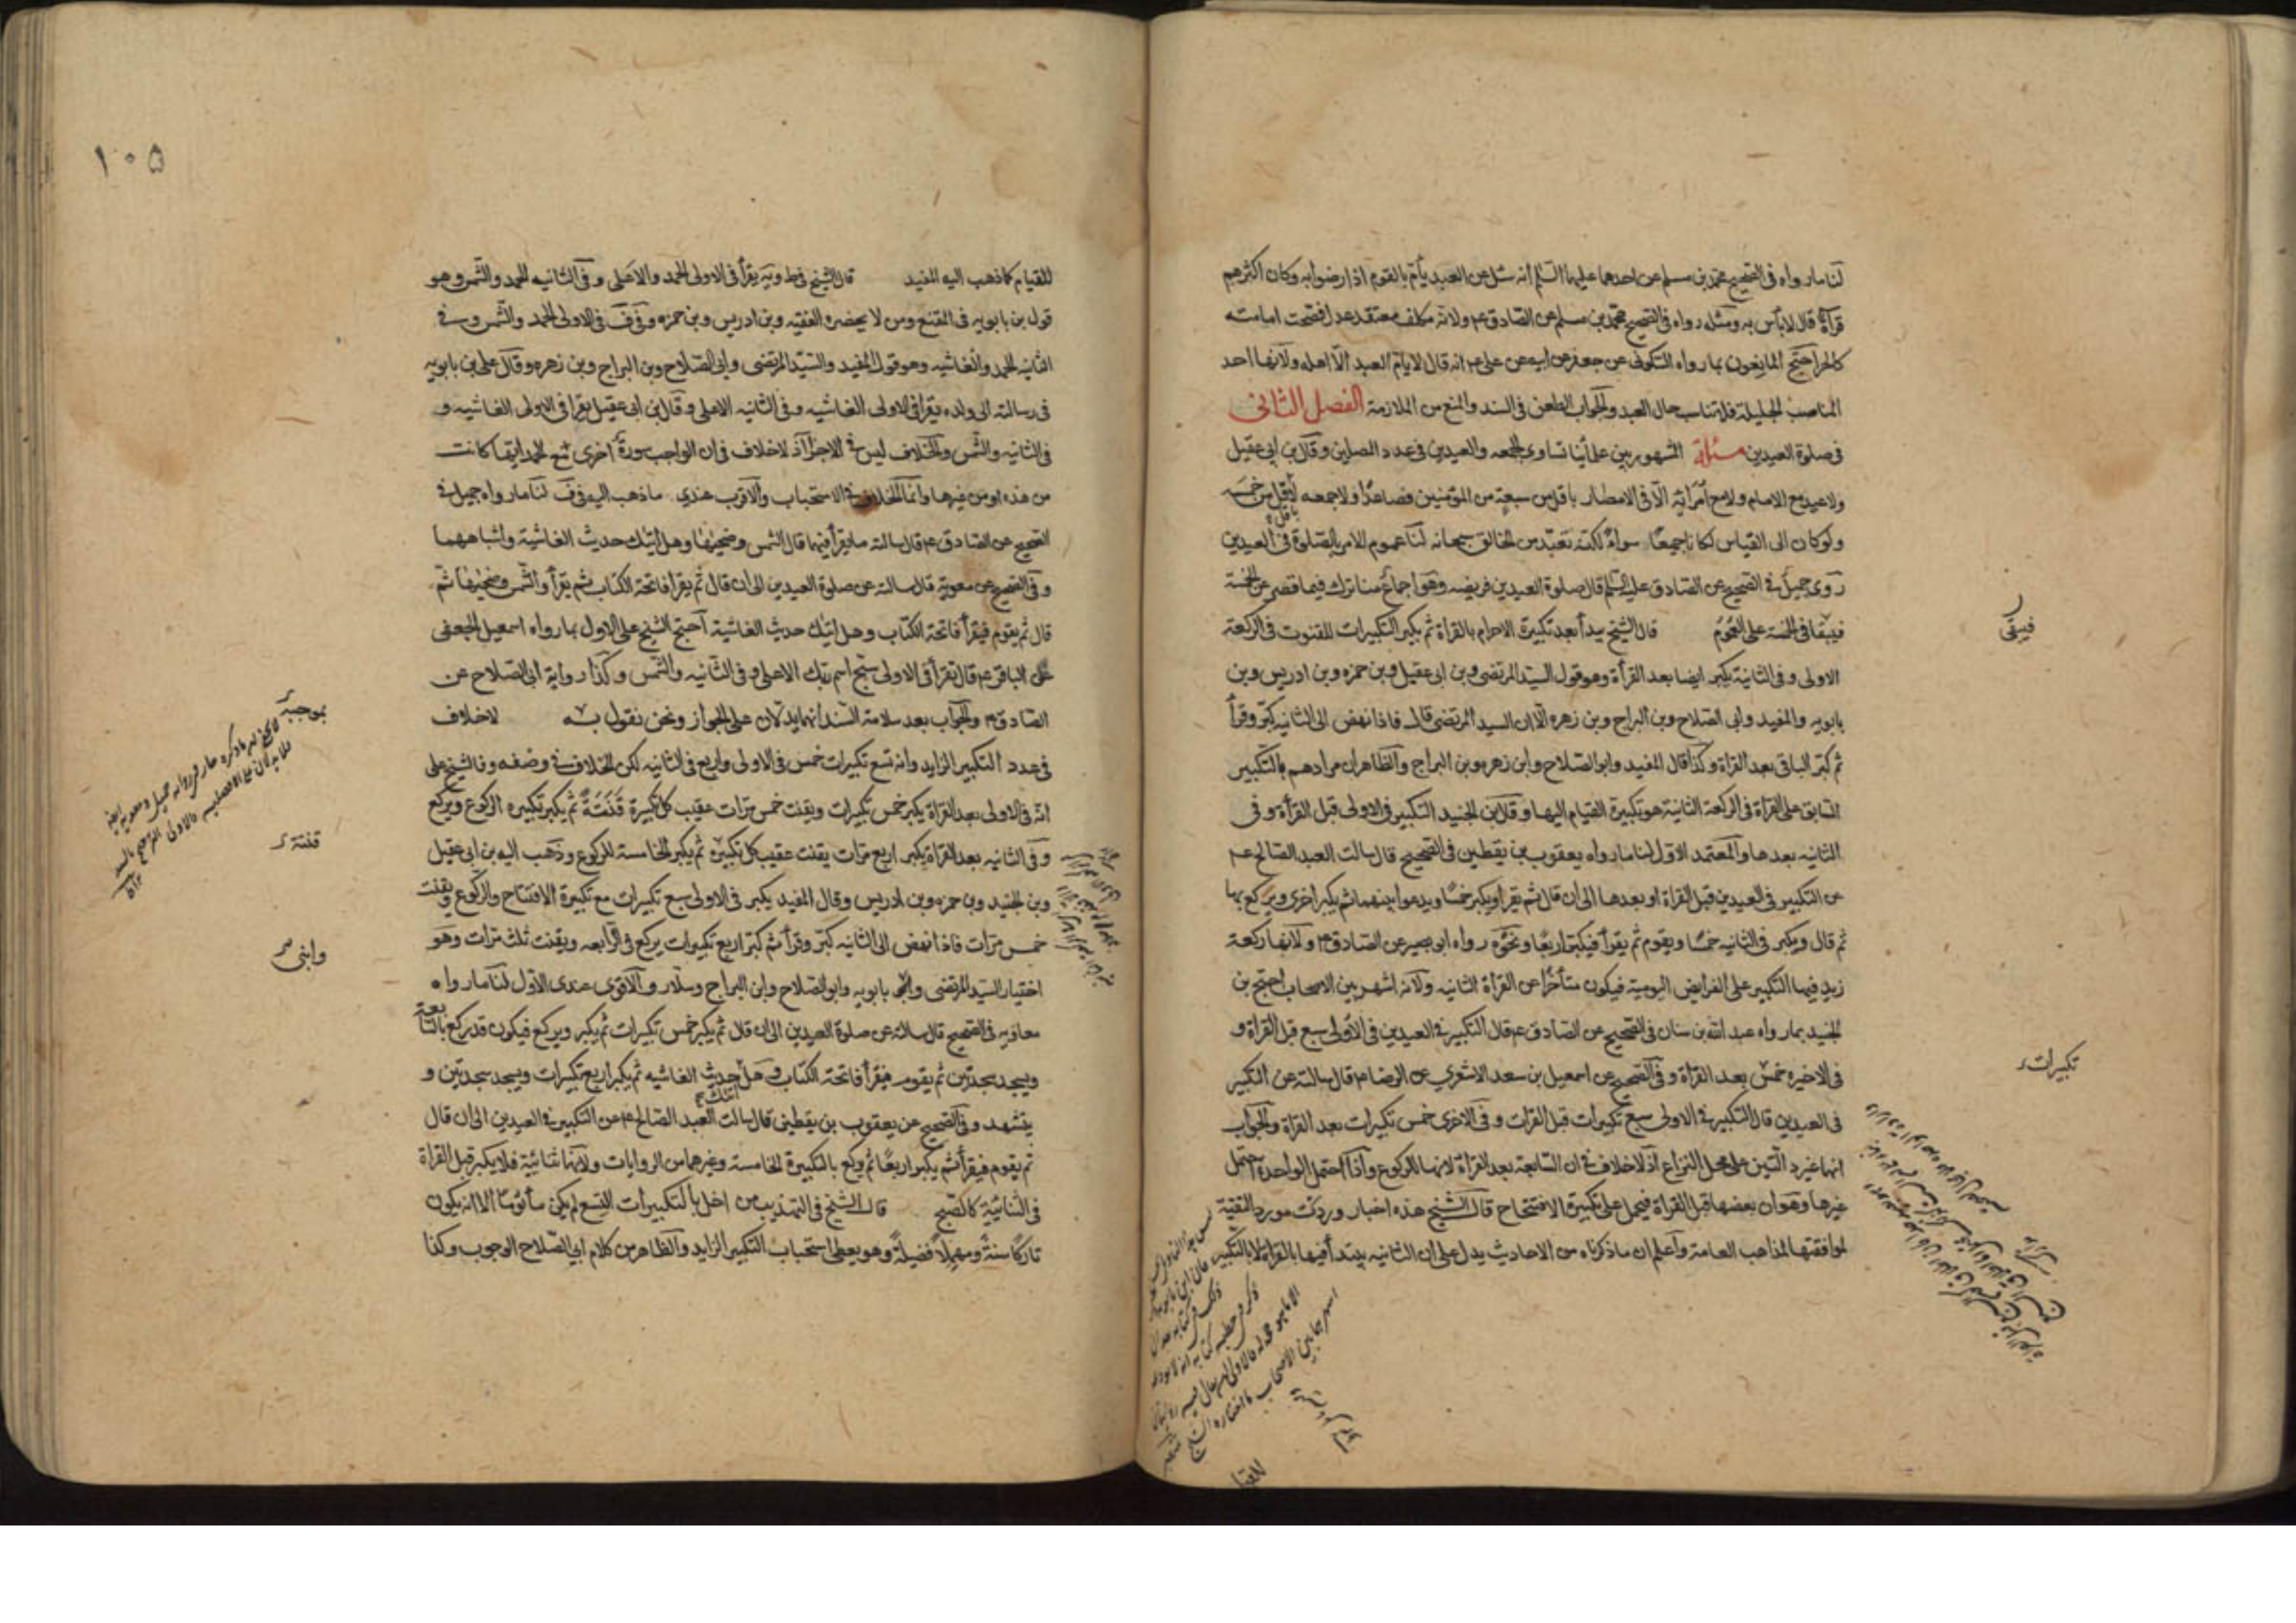 لنا ما رواه فى الصحيح محمد بن مسلم عن احدهما عليهما السلم انه سئل عن العبد يأم بالقوم اذا رضوا به وكان اكثرهم
قرآة قال لا بأس به ومثله رواه فى الصحيح محمد بن مسلم عن الصادق ع ولانه مكلف معتقد عدل فصحت امامته
كالحر احتج المانعون بما رواه السكونى عن جعفر عن ابيه عن على ع انه قال لا يام العبد الا اهله ولانها احد
المناصب الجليلة فلا تناسب حال العبد والجواب الطعن فى السند والمنع من الملازمة الفصل الثانى
فى صلوة العيدين مسئلة المشهور بين علمائنا تساوى الجمعه والعيدين فى عدد المصلين وقال بن ابى عقيل
ولا عيد مع الامام ولا مع امرائه الا فى الامصار باقل من سبعة من المؤمنين فصاعدا ولا جمعه باقل من خمسه
ولو كان الى القياس لكانا جميعا سواء لكنه تعبد من الخالق سبحانه لنا عموم الامر بالصلوة فى العيدين
روى جميل فى الصحيح عن الصادق عليه السلم قال صلوة العيدين فريضه وهو اجماع منا ترك فيما قصر عن الخمسة
فيبقا فى الخمسة على العموم قال الشيخ يبدأ بعد تكبيرة الاحرام بالقراة ثم يكبر التكبيرات للقنوت فى الركعة
الاولى وفى الثانية يكبر ايضا بعد القرأة وهو قول السيد المرتضى وبن ابى عقيل وبن حمزه وبن ادريس وبن
بابويه والمفيد وابى الصلاح وبن البراج وبن زهره الا ان السيد المرتضى قال فاذا نهض الى الثانيه كبر وقرأ
ثم كبر الباقى بعد القراة وكذا قال المفيد وابو الصلاح وابن زهره وبن البراج والظاهر ان مرادهم بالتكبير
السابق على القراة فى الركعة الثانية هو تكبيرة القيام اليها وقال بن الجنيد التكبير فى الاولى قبل القرأة وفى
الثانيه بعدها والمعتمد الاول لنا ما رواه يعقوب بن يقطين فى الصحيح قال سالت العبد الصالح ع
عن التكبير فى العيدين قبل القراة او بعدها الى ان قال ثم يقرا ويكبر خمسا ويدعوا بينهما ثم يكبر اخرى ويركع بها
ثم قال ويكبر فى الثانيه خمسا ويقوم ثم يقرأ فيكبر اربعا ونحوه رواه ابو بصير عن الصادق ع ولانها ركعة
زيد فيها التكبير على الفرايض اليومية فيكون متأخرا عن القراة الثانيه ولانه اشهر بين الاصحاب احتج بن
الجنيد بما رواه عبد الله بن سنان فى الصحيح عن الصادق ع قال التكبير فى العيدين فى الاولى سبع قبل القراة و
فى الاخيره خمس بعد القرأة وفى الصحيح عن اسمعيل بن سعد الاشعرى عن الرضا ع قال سالته عن التكبير
فى العيدين قال التكبير فى الاولى سبع تكبيرات قبل القرات وفى الاخرى خمس تكبيرات بعد القراة والجواب
انهما غير دالتين على محل النزاع اذ لا خلاف فى ان السابعة بعد القراة لانها للركوع واذا احتمل الواحدة احتمل
غيرها وهو ان بعضها قبل القراة فيحمل على تكبيرة الافتتاح قال الشيخ هذه اخبار وردت مورد التقية
لموافقتها لمذاهب العامة واعلم ان ما ذكرناه من الاحاديث يدل على ان الثانيه يبتدأ فيها بالقراة لا بالتكبير
فيبقى
تكبيرات
للقيا
١٠۵
للقيام كما ذهب اليه المفيد قال الشيخ فى ط ويه يقرأ فى الاولى الحمد والاعلى وفى الثانيه الحمد والشمس وهو
قول بن بابويه فى المقنع ومن لا يحضره الفقيه وبن ادريس وبن حمزه وفى ف فى الاولى الحمد والشمس وفى
الثانيه الحمد والغاشيه وهو قول المفيد والسيد المرتضى وابى الصلاح وبن البراج وبن زهره وقال على بن بابويه
فى رسالته الى ولده يقرأ فى الاولى الغاشيه وفى الثانيه الاعلى وقال بن ابى عقيل يقرأ فى الاولى الغاشيه و
فى الثانيه والشمس والخلاف ليس فى الاجزا اذ لا خلاف فى ان الواجب سورة اخرى مع الحمد ايها كانت
من هذه او من غيرها وانما الخلاف فى الاستحباب والاقرب عندى ما ذهب اليه فى ف لنا ما رواه جميل فى
الصحيح عن الصادق ع قال سالته ما يقرأ فيهما قال الشمس وضحيها وهل اتيك حديث الغاشية واشباههما
وفى الصحيح عن معوية قال سالته عن صلوة العيدين الى ان قال ثم يقرا فاتحة الكتاب ثم يقرأ والشمس وضحيها ثم
قال ثم يقوم فيقرأ فاتحة الكتاب وهل اتيك حديث الغاشية احتج الشيخ على الاول بما رواه اسمعيل الجعفى
عن الباقر ع قال تقرأ فى الاولى سبح اسم ربك الاعلى وفى الثانيه والشمس وكذا رواية ابى الصلاح عن
الصادق ع والجواب بعد سلامة السند انهما يدلان على الجواز ونحن نقول به لا خلاف
فى عدد التكبير الزايد وانه تسع تكبيرات خمس فى الاولى واربع فى الثانيه لكن الخلاف فى وضعه فالشيخ على
انه فى الاولى بعد القراة يكبر خمس تكبيرات ويقنت خمس مرات عقيب كل تكبيرة قنتة ثم يكبر تكبيره الركوع ويركع
وفى الثانيه بعد القراة يكبر اربع مرات يقنت عقيب كل تكبيره ثم يكبر الخامسة للركوع وذهب اليه بن ابى عقيل
وبن الجنيد وبن حمزه وبن ادريس وقال المفيد يكبر فى الاولى سبع تكبيرات مع تكبيرة الافتتاح والركوع ويقنت
خمس مرات فاذا نهض الى الثانيه كبر وقرأ ثم كبر اربع تكبيرات يركع فى الرابعه ويقنت ثلث مرات وهو
اختيار السيد المرتضى وابن بابويه وابو الصلاح وابن البراج وسلار والاقوى عندى الاول لنا ما رواه
معاويه فى الصحيح قال سالته عن صلوة العيدين الى ان قال ثم يكبر خمس تكبيرات ثم يكبر ويركع فيكون قد ركع بالسابعة
ويسجد سجدتين ثم يقوم فيقرأ فاتحة الكتاب وهل اتيك حديث الغاشيه ثم يكبر اربع تكبيرات ويسجد سجدتين و
يتشهد وفى الصحيح عن يعقوب بن يقطين قال سالت العبد الصالح ع عن التكبير فى العيدين الى ان قال
ثم يقوم فيقرأ ثم يكبر اربعا ثم يركع بالتكبيرة الخامسة وغيرهما من الروايات ولانها ثنائية فلا يكبر قبل القراة
فى الثنائية كالصبح قال الشيخ فى التهذيب من اخل بالتكبيرات التسع لم يكن مأثوما الا انه يكون
تاركا سنة ومهملا فضيلة وهو يعطى استحباب التكبير الزايد والظاهر من كلام ابى الصلاح الوجوب وكذا
قنتة
وابنى